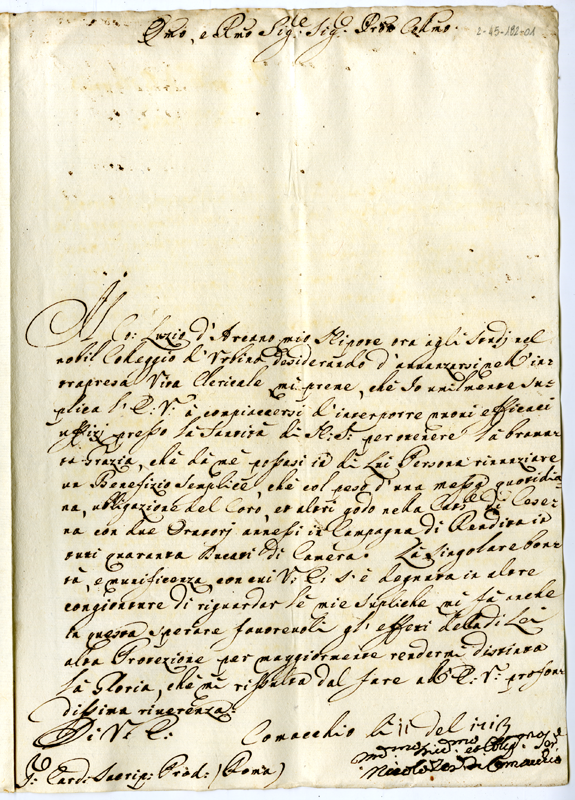 Emo, e Rmo Sig.re Sig.r Pron Colmo.
2-45-182-01
Il Co: Luzio d'Arcano mio Nipote ora agli Studj nel
nobil Collegio d'Urbino desiderando d'avanzarsi nell'in-
trapresa Vita Clericale mi preme, che Io umilmente su-
plica l'E: V: à compiacersi d'interporre i suoi efficaci
uffizj presso la Santità di N: S: per ottenere la brama-
ta Grazia, che da me possasi in di Lui Persona rinunziare
un Benefizio Semplice, che col peso d'una messa quotidia-
na, ubligazione del Coro, et altri godo nella Catt.le di Cese-
na con due Oratorj annessi in Campagna di Rendita in
tutti quaranta Ducati di Camera. La singolare bon-
tà, e munificenza, con cui V: E: s'è degnata in altre
congionture di riguardar le mie supliche mi fà anche
in questa sperare favorevoli gl'effetti della di Lei
alta Protezione per maggiormente rendermi distinta
la Gloria, che mi risulta dal fare all'E: V: profon-
dissima riverenza:
Di V: E:
Comacchio li 11 del 1713
Card: Sacrip: Prod: (Roma)
Nicolò Ves.o di Comacchio